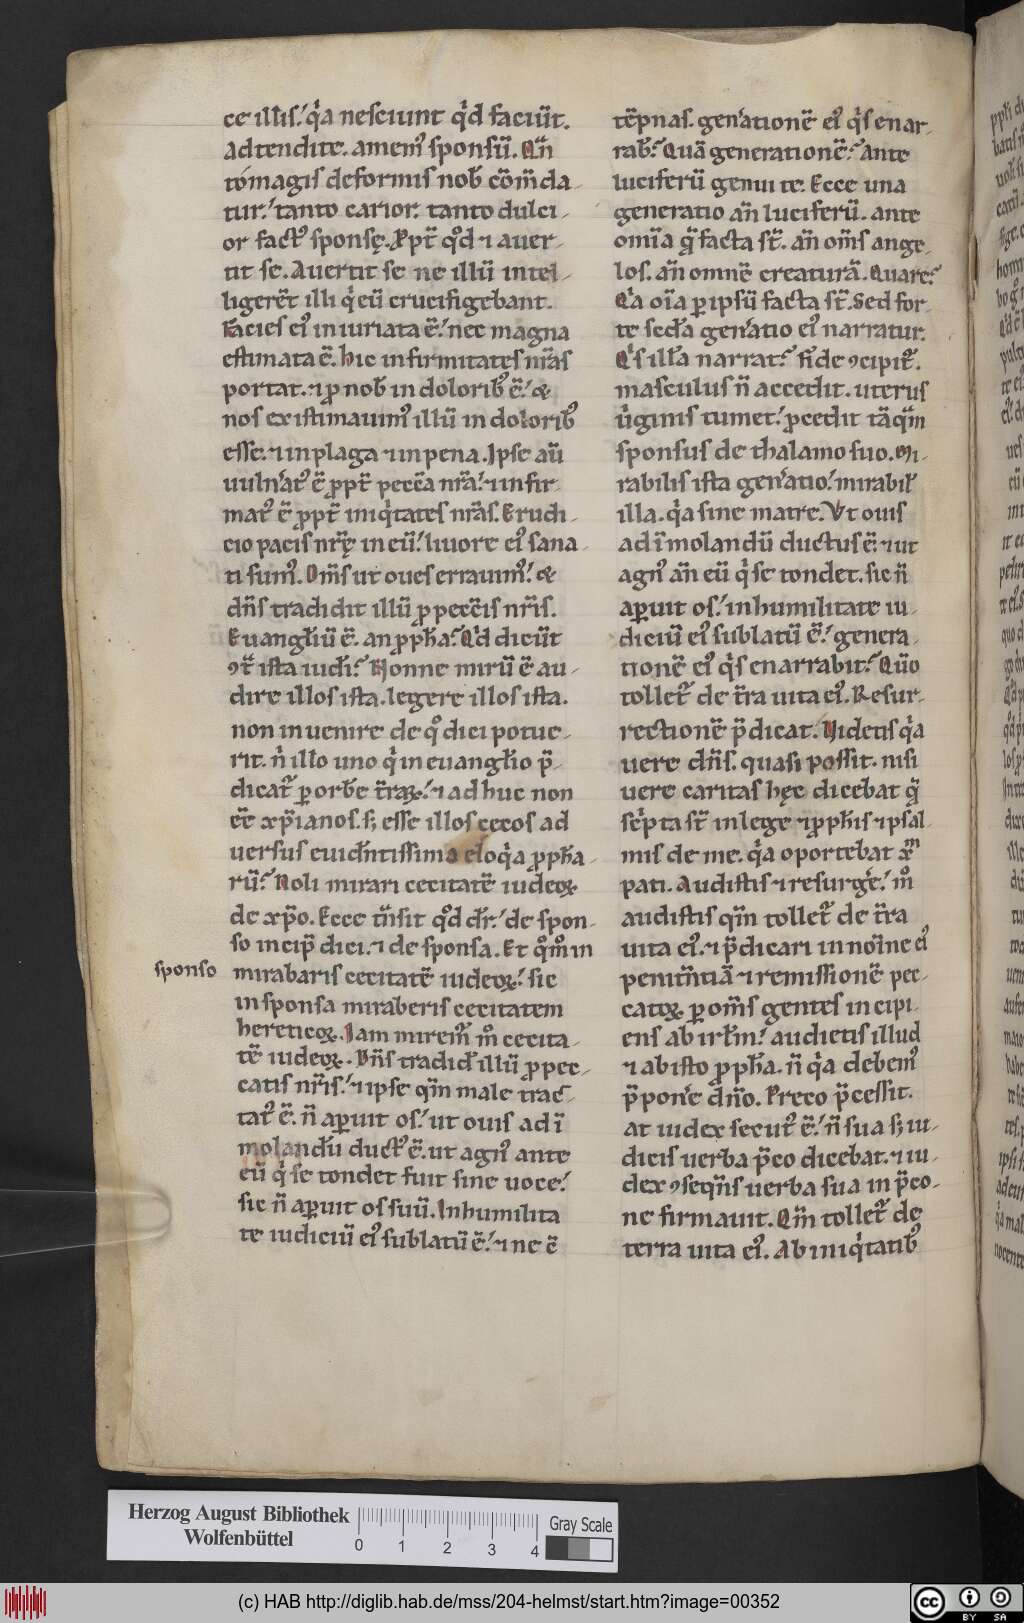 ce illis.' q̇a nesciunt q̇d faciu̅t.
adtendite. amem᷒ sponsu̅. Qn̅
to magis deformis nob̅ co̅m̅da-
tur.' tanto carior. tanto dulci-
or fact᷒ sponsę. Ꝓpt̅ qd̊ ⁊ auer-
tit se. Auertit se ne illu̅ intel-
ligere̅t illi q̇ eu̅ crucifigebant.
Facies ei᷒ iniuriata e̅.' nec magna
estimata e̅. hic infirmitates nr̅as
portat. ⁊ ꝓ nob̅ in dolorib᷒ e̅.' &
nos existimauim᷒ illu̅ in dolorib᷒
esse. ⁊ in plaga ⁊ in pena. Ipse au̅
uuln̅at᷒ e̅ ꝓpt̅ pecc̅a nr̅a.' ⁊ infir-
mat᷒ e̅ ꝓpt̅ iniq̇tates nr̅as. Erudi-
cio pacis nr̅ę in eu̅.' liuore ei᷒ sana-
ti sum᷒. Om̅s ut oues errauim᷒.' &
dn̅s tradidit illu̅ ꝓ pecc̅is nr̅is.
Euangliu̅ e̅. an ꝓpħa.̉ Q̇d dicu̅t
ꝯt̅ ista iudi̅.̉ Nonne miru̅ e̅ au-
dire illos ista. legere illos ista.
non inuenire de q᷒ dici potue-
rit. n̅ illo uno q̇ in euanglio p̅-
dicat̅ ꝑ orbe̅ t̅raꝝ.' ⁊ adhuc non
ee̅ xp̅ianos. s; esse illos cecos ad
uersus euide̅ntissima eloq̇a ꝓpħa-
ru̅.̉ Noli mirari cecitate̅ iudeoꝝ
de xp̅o. Ecce t̅nsit qd̊ dr̅.' de spon-
so incip̅ dici. ⁊ de sponsa. Et qm̊o̊ in
sponso
mirabaris cecitate̅ iudeoꝝ.' sic
in sponsa miraberis cecitatem
hereticoꝝ. Iam mirem̅ m̊ cecita-
te̅ iudeoꝝ. Dn̅s tradid̅ illu̅ ꝓ pec-
catis nr̅is.' ⁊ ipse qm̅ male trac-
tat᷒ e̅. n̅ aꝑuit os.' ut ouis ad i̅
molandu̅ duct᷒ e̅. ut agn᷒ ante
eu̅ q̇ se tondet fuit sine uoce.'
sic n̅ aꝑuit os suu̅. Inhumilita
te iudiciu̅ ei᷒ sublatu̅ e̅.' ⁊ ine e̅
te̅pnas. gen̅atione̅ ei᷒ q̇s enar-
rab̅.̉ Qua̅ generatione̅.̉ Ante
luciferu̅ genui te. Ecce una
generatio an̅ luciferu̅. ante
om̅ia q̅ facta st̅. an̅ om̅s ange-
los. an̅ omne̅ creatura̅. Quare.̉
Q̇a oi̅a ꝑ ipsu̅ facta st̅. Sed for-
te scd̅a gen̅atio ei᷒ narratur.
Q̇s illa̅ narrat.̉ Fide ꝯcipit̅.
masculus n̅ accedit. uterus
u̇ginis tumet.' ꝓcedit ta̅qu̅m
sponsus de thalamo suo. Mi-
rabilis ista gen̅atio.' mirabil̅
illa. q̇a sine matre. Vt ouis
ad i̅molandu̅ ductus e̅. ⁊ ut
agn᷒ an̅ eu̅ q̇ se tondet. sic n̅
aꝑuit os.' in humilitate iu-
diciu̅ ei᷒ sublatu̅ e̅.' genera-
tione̅ ei᷒ q̇s enarrabit.̉ Qu̅o
tollet̅ de t̅ra uita ei᷒. Resur-
rectione̅ p̅dicat. Videtis q̇a
uere dn̅s. quasi possit. nisi
uere caritas hęc dicebat q̅
sc̅pta st̅ in lege ⁊ ꝓpħis ⁊ psal-
mis de me. q̇a oportebat xp̅m
pati. Audistis ⁊ resurge̅.' m̊
audistis qm̅ tollet̅ de t̅ra
uita ei᷒. ⁊ p̅dicari in noi̅ne ei᷒
penite̅ntia̅ ⁊ remissione̅ pec-
catoꝝ ꝑ om̅s gentes incipi-
ens ab irłm.' audietis illud
⁊ ab isto ꝓpħa. n̅ q̇a debem᷒
p̅pone̅ dn̅o. Preco p̅cessit.
at iudex secut᷒ e̅.' n̅ sua s; iu-
dicis uerba p̅co dicebat. ⁊ iu-
dex ꝯseqn̅s uerba sua in p̅co-
ne firmauit. Qm̅ tollet̅ de
terra uita ei᷒. Ab iniq̇tatib᷒
Herzog August Bibliothek
Wolfenbüttel
0 1 2 3 4
Gray Scale
(c) HAB http://diglib.hab.de/mss/204-helmst/start.htm?image=00352
cc BY SA